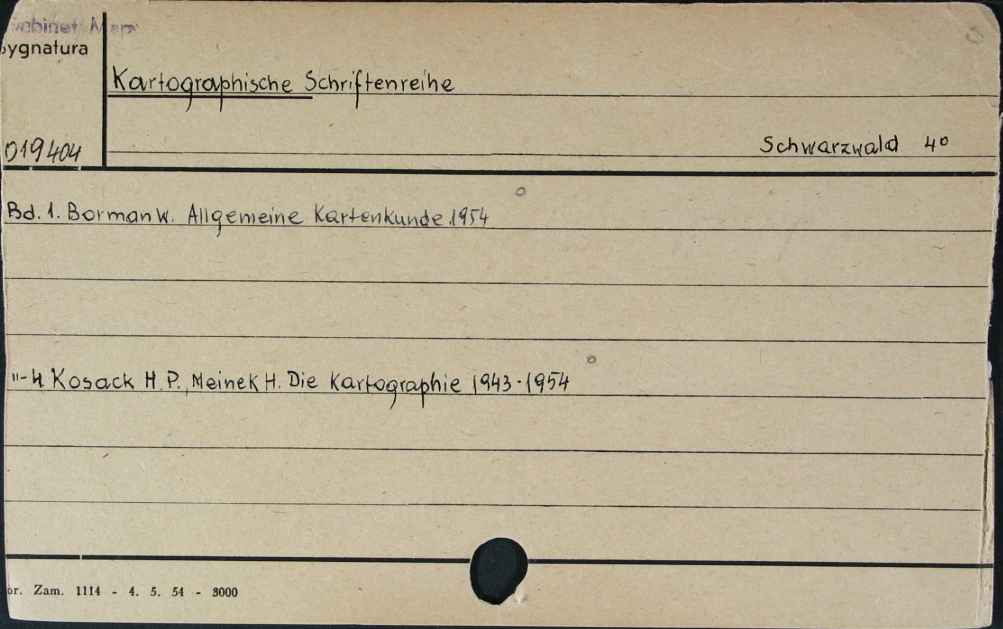 Sygnatura
Kartographische Schriftenreihe
019404
Schwarzwald 4º
Bd. 1. Borman W. Allgemeine Kartenkunde 1954
"-4 Kosack H. P., Meinek H. Die Kartographie 1943-1954
or. Zam. 1114 - 4. 5. 54 - 3000